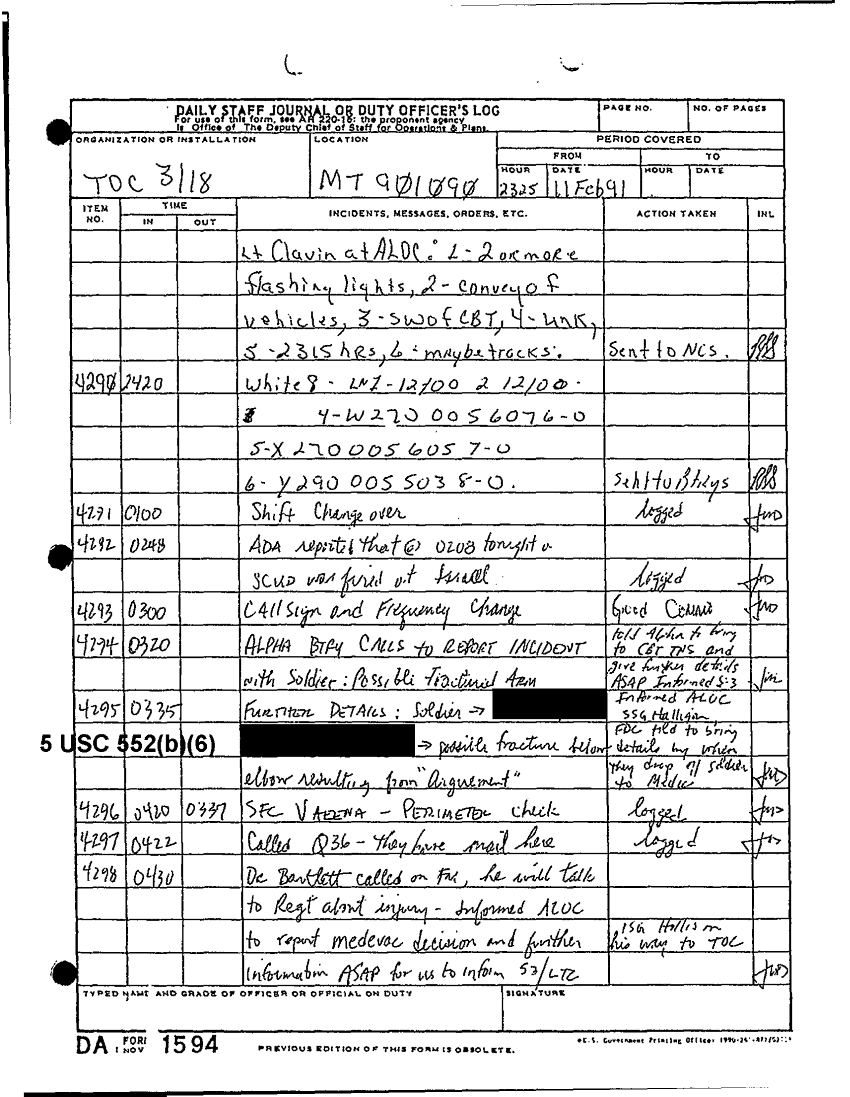 DAILY STAFF JOURNAL OR DUTY OFFICER'S LOG
For use of this form, see AR 220-15: the proponent agency
is Office of The Deputy Chief of Staff for Operations & Plans.
PAGE NO.
NO. OF PAGES
ORGANIZATION OR INSTALLATION
TOC 3/18
LOCATION
MT 901090
PERIOD COVERED
FROM
TO
HOUR
DATE
HOUR
DATE
2325
11 Feb 91
ITEM NO.
TIME
IN
OUT
INCIDENTS, MESSAGES, ORDERS, ETC.
ACTION TAKEN
INL
Lt Clavin at ALOC: 1-2 or more
flashing lights, 2-convey of
vehicles, 3-SW of CBT, 4-UNK,
5-2315 hrs, 6-maybe tracks. Sent to NCS.
4290 2420 White 8 - 12/00 2 12/00.
4-W270 0056076-0
5-X 270005605 7-0
6-Y290 005503 8-0.
4291 0100 Shift Change over logged
4292 0248 ADA reported that @ 0208 tonight a
SCUD was fired at Israel logged
4293 0300 Call Sign and Frequency Change
4294 0320 ALPHA BTRY CALLS TO REPORT INCIDENT
with Soldier: Possible Fractured Arm
told Alpha to bring
to CBT TNS and
give further details
ASAP Informed S-3
4295 0335 FURTHER DETAILS: Soldier →
Informed ALOC
SSG Halligan
5 USC 552(b)(6)
→ possible fracture below
elbow resulting from "Arguement"
FDC told to bring
details by when
they drop off soldier
to Medic
4296 0420 0337 SFC - PERIMETER check logged
4297 0422 Called Q36 - they have mail here logged
4298 0430 Dr Bartlett called on , he will talk
to Regt about injury - Informed ALOC
to report medevac decision and further
information ASAP for us to inform S3/LTC
1SG Hollis on
his way to TOC
TYPED NAME AND GRADE OF OFFICER OR OFFICIAL ON DUTY
SIGNATURE
DA FORM 1 NOV 1594
PREVIOUS EDITION OF THIS FORM IS OBSOLETE.